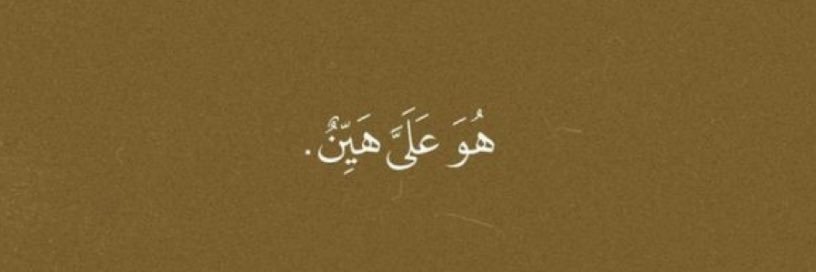 هُوَ عَلَىَّ هَيِّنٌ.